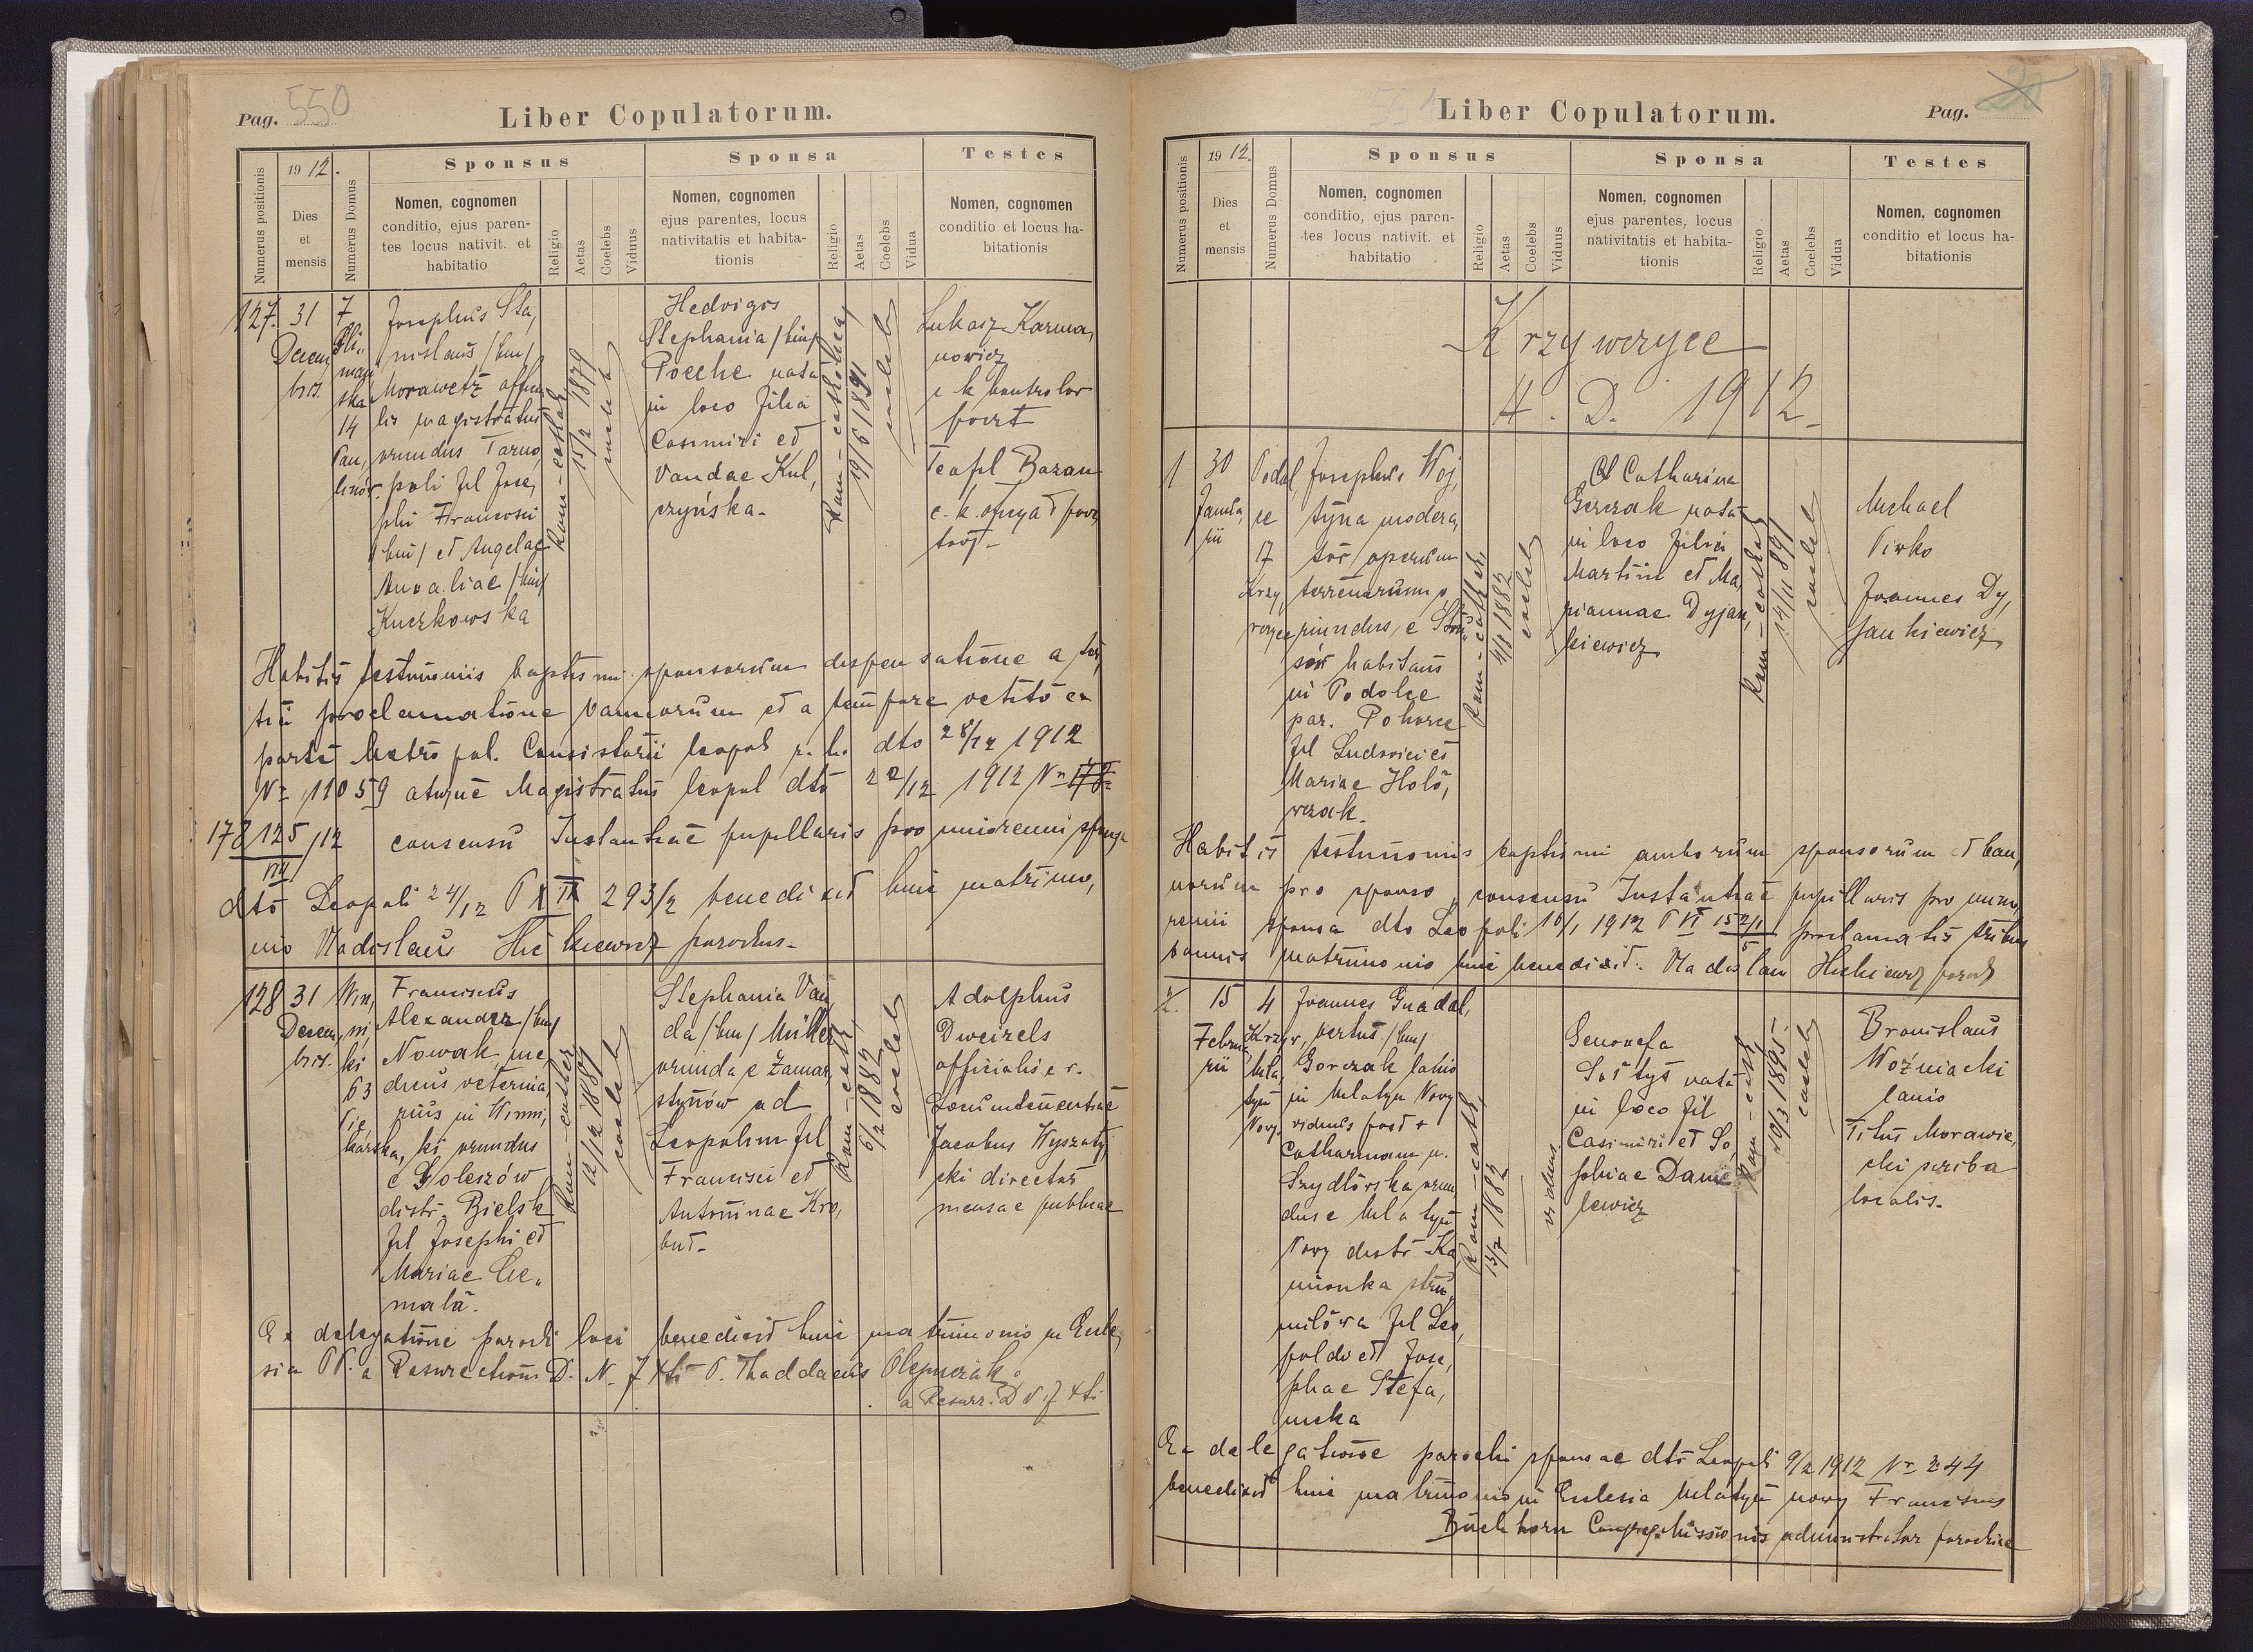 Pag. 550
Liber Copulatorum.
Numerus positionis
1912.
Dies
et
mensis
Numerus Domus
Sponsus
Nomen, cognomen
conditio, ejus paren-
tes locus nativit. et
habitatio
Religio
Aetas
Coelebs
Viduus
Sponsa
Nomen, cognomen
ejus parentes, locus
nativitatis et habita-
tionis
Religio
Aetas
Coelebs
Vidua
Testes
Nomen, cognomen
conditio et locus ha-
bitationis
127.
31
Decem,
bris.
7
man
ska
14
Pau,
linów.
Josephus Sta,
nislaus /bin/
Morawetz
lis magistratus
oriundus Tarno,
poli fil Jose,
phi Francisci
/bin/ et Angelae
Amaliae /bin/
Kuczkowska
Rom-cathol
15/2 1879
coelebs
Hedvigis
Stephania /bin/
Poeche nata
in loco filia
Casimiri et
Vandae Kul,
czyńska-
Rom-catholica
19/6 1891
coelebs
Lukasz Karma,
nowicz
c k kontrolor
poczt
Teofil Bazan
c. k.
Habitis testimoniis baptismi sponsorum dispensatione a
tia proclamatione bannorum et a tempore vetito ex
parte Metropol. Consistorii leopol r. l. dto 28/12 1912
Nr 11059 atque Magistratus leopol dto 22/12 1912 Nr
178125/12
VIII
consensu Instantiae pupillaris pro minorenni sponsa
dto Leopoli 24/12 P II 293/2 benedixit huic matrimo,
nio Vladislaus parochus-
128
31
Decem,
bris.
Win,
ni,
ki
63
Pie,
karska,
Franciscus
Alexander /bin/
Nowak me,
dicus veterina,
rius in Winni,
ki oriundus
e Goleszów
distr. Bielsk
fil Josephi et
Mariae Cie,
mala.
Rom-cathol
12/12 1887
coelebs
Stephania Van,
da /bin/ Müller
oriunda e Zamar,
stynów ad
Leopolim fil
Francisci et
Antoninae Kro,
but-
Rom-cath,
6/2 1887
coelebs
Adolphus
Dweizels
officialis c r.
Jacobus Wyszaty,
cki director
mensae publicae
Ex delegatione parochi loci benedixit huic matrimonio in Eccle,
sia PP. a Resurectioni D. N. J Xti P. Thaddaeus Olejniczak
a Resurr. D N J Xti
551
Liber Copulatorum.
Pag. 20
Numerus positionis
1912.
Dies
et
mensis
Numerus Domus
Sponsus
Nomen, cognomen
conditio, ejus paren-
tes locus nativit. et
habitatio
Religio
Aetas
Coelebs
Viduus
Sponsa
Nomen, cognomen
ejus parentes, locus
nativitatis et habita-
tionis
Religio
Aetas
Coelebs
Vidua
Testes
Nomen, cognomen
conditio et locus ha-
bitationis
Krzywczyce
A. D. 1912-
1
30
Janua,
rii
Podol,
ce
17
Krzy,
wczyce
Josephus Woj,
tyna modera,
tor operum
terrenarum o,
riundus e
habitans
in Podolce
par. Pohorce
fil Ludovici et
Mariae Holo,
wczak.
Rom-cathol,
4/2 1882
coelebs
Catharina
Gorczak nata
in loco filia
Martini et Ma,
riannae Dyjan,
kiewicz
Rom-cathol
14/11 1891
coelebs
Michael
Pirko
Joannes Dy,
jankiewicz
Habitis testimoniis baptismi amborum sponsorum et ban,
norum pro sponso, consensu Instantiae pupillaris pro mino,
renni sponsa dto Leopoli 16/1 1912 P VI 152/1
5
proclamatis tribus
bannis matrimonio huic benedixit. Vladislaus parochus
2.
15
Februa,
rii
4
Krzyw,
Mila,
tyn
Nowy
Joannes
bertus /bin/
Gorczak lanio
in Milatyn Nowy
viduus post +
Catharinam n.
Szydlowska oriun,
dus e Milatyn
Nowy distr Ka,
mionka stru,
milowa fil Leo,
poldi et Jose,
phae Stefa,
nicka
Rom-cath,
13/7 1882
viduus
Genovefa
Soltys nata
in loco fil
Casimiri et So,
phiae Danie
lewicz
Rom-cath,
19/3 1895.
coelebs
Bronislaus
Woźniacki
lanio
Titus Morawie,
cki scriba
localis-
Ex delegatione parochi sponsae dto Leopoli 9/2 1912 Nr 244
benedixit huic matrimonio in Ecclesia Milatyn nowy Franciscus
Buchhorn Congreg. Missionis administrator parochiae